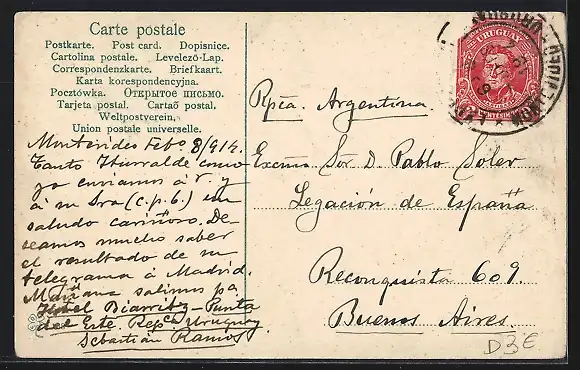 Carte postale
Postkarte. Post card. Dopisnice.
Cartolina postale. Levelező-Lap.
Correspondenzkarte. Briefkaart.
Karta korespondencyjna.
Pocztówka. Открытое письмо.
Tarjeta postal. Cartaõ postal.
Weltpostverein.
Union postale universelle.
Montevideo Febº 8/914.
Tanto Iturralde como
yo enviamos á V. y
á su Sra (c.p.b.) un
saludo cariñoso. De
seamos mucho saber
el resultado de su
telegrama á Madrid.
Mañana salimos pa
Hotel Biarritz - Punta
del Este. Repca Uruguay.
Sebastián Ramos
URUGUAY
Rpca. Argentina.
Excmo Sor D. Pablo Soler
Legación de España
Reconquista 609.
Buenos Aires.
D3E